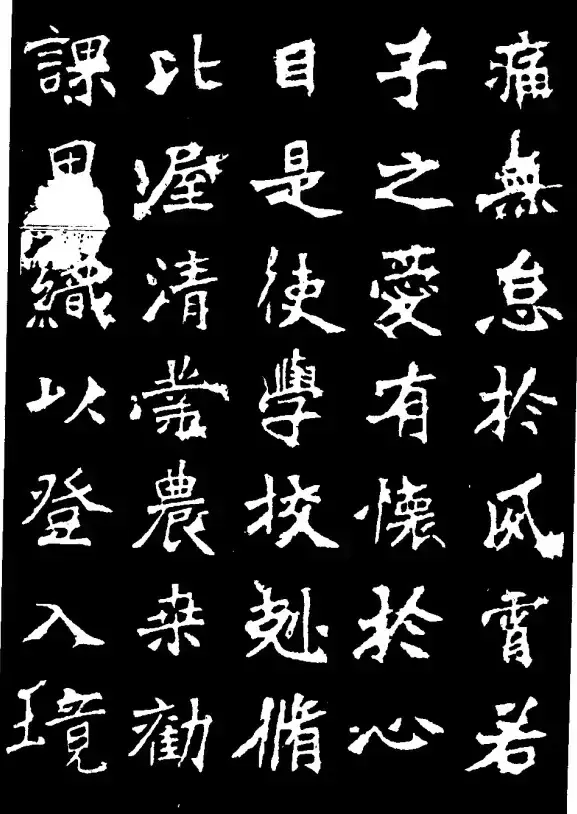 痛無怠於夙宵若
子之愛有懷於心
目是使學校剋脩
比屋清業農桒勸
課田織以登入境